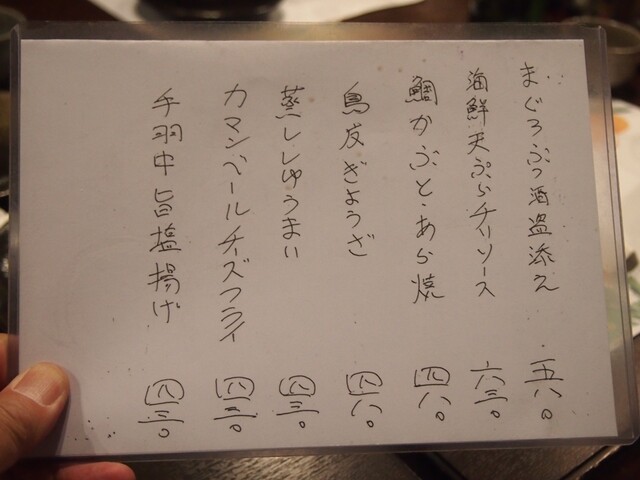 まぐろぶつ酒盗添え 五八〇
海鮮天ぷらチリソース 六三〇
鯛かぶと・あら焼 四八〇
鳥皮ぎょうざ 四八〇
蒸ししゅうまい 四三〇
カマンベールチーズフライ 四三〇
手羽中旨塩揚げ 四三〇